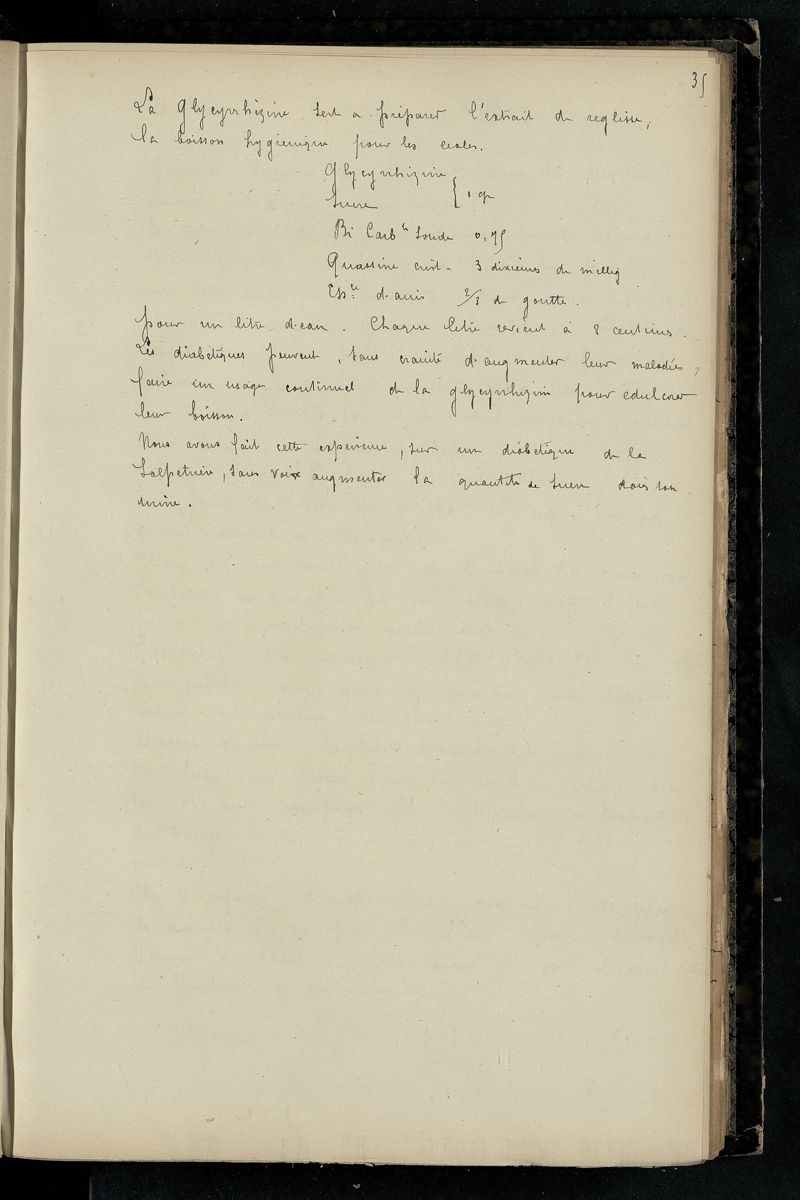 35
La Glycyrrhizine sert a préparer l'extrait de reglisse,
la boisson hygienique pour les ecoles.
Glycyrrhizine
Sucre { 1 gr
Bi Carb te Soude 0,75
Quassine crist. 3 dixièmes de millig
Ess ce d'anis 2/3 de goutte.
pour un litre d'eau. Chaque litre revient à 3 centimes.
Les diabetiques peuvent, sans crainte d'augmenter leur maladies,
faire un usage continuel de la glycyrrhizine pour edulcorer
leur boisson.
Nous avons fait cette experience, sur un diabetique de la
Salpetriere, sans voir augmenter la quantité de sucre dans son
urine.